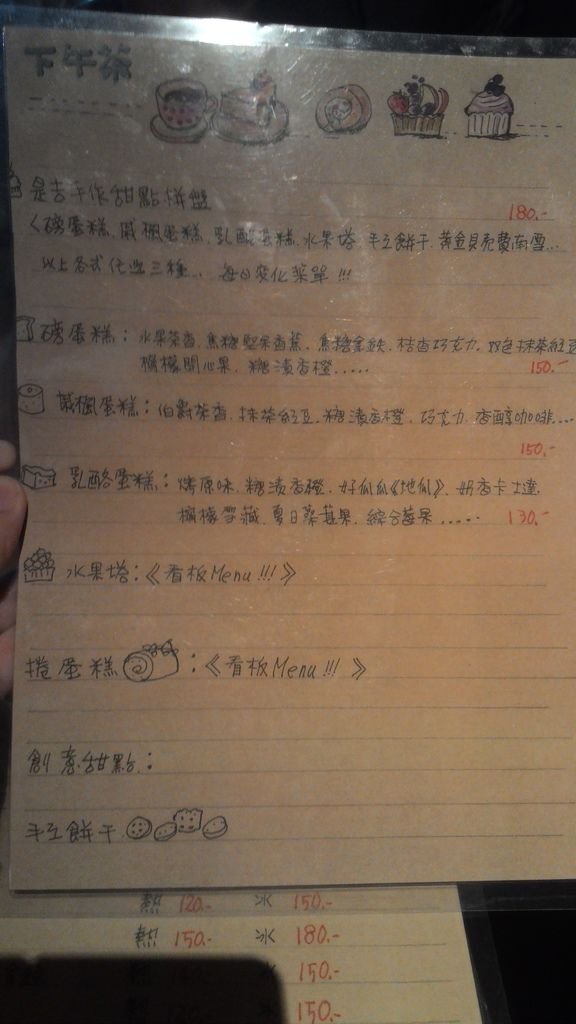 下午茶
是吉手作甜點拼盤 180.-
磅蛋糕.戚楓蛋糕.乳酪蛋糕.水果塔.手工餅干.黃金貝殼費南雪...
以上各式任選三種... 每日變化菜單!!!
磅蛋糕: 水果茶香.焦糖堅果香蕉.焦糖拿鐵.桔香巧克力.双色抹茶紅豆
檸檬開心果.糖漬香橙..... 150.-
戚楓蛋糕: 伯爵茶香.抹茶紅豆.糖漬香橙.巧克力.香醇咖啡...
150.-
乳酪蛋糕: 烤原味.糖漬香橙.好瓜瓜《地瓜》.奶香卡士達.
檸檬雪藏.夏日桑葚果.綜合莓果..... 130.-
水果塔:《看板Menu!!!》
捲蛋糕:《看板Menu!!!》
創意甜點:
手工餅干
熱 120.- 冰 150.-
熱 150.- 冰 180.-
冰 150.-
冰 150.-